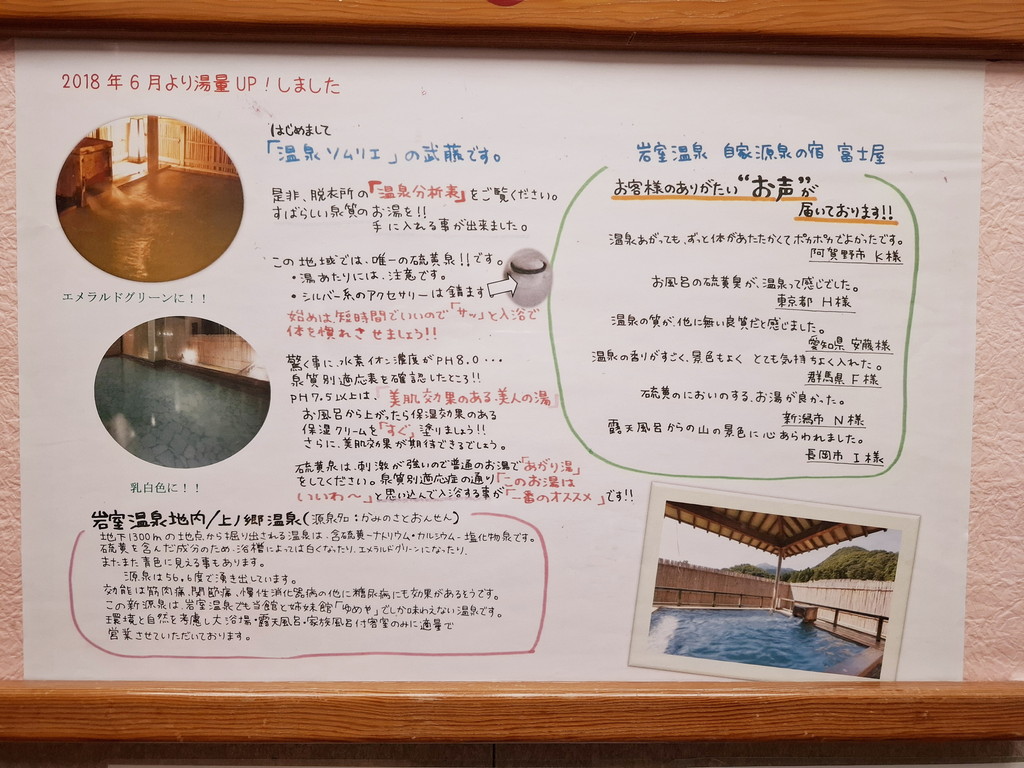 2018年6月より湯量UP!しました
エメラルドグリーンに!!
乳白色に!!
はじめまして
「温泉ソムリエ」の武藤です。
是非、脱衣所の「温泉分析表」をご覧ください。
すばらしい泉質のお湯を!!
手に入れる事が出来ました。
この地域では、唯一の硫黄泉!!です。
・湯あたりには、注意です。
・シルバー系のアクセサリーは錆ます
始めは短時間でいいので「サッ」と入浴で
体を慣れさせましょう!!
驚く事に、水素イオン濃度がPH8.0・・・
泉質別適応表を確認したところ!!
PH7.5以上は、「美肌効果のある美人の湯」
お風呂から上がったら保湿効果のある
保湿クリームを「すぐ」塗りましょう!!
さらに、美肌効果が期待できるでしょう。
硫黄泉は、刺激が強いので普通のお湯で「あがり湯」
をしてください。泉質別適応症の通り「このお湯は
いいわ〜」と思い込んで入浴する事が「一番のオススメ」です!!
岩室温泉地内/上ノ郷温泉(源泉名:かみのさとおんせん)
地下1300mの地点から掘り出される温泉は、含硫黄-ナトリウム・カルシウム-塩化物泉です。
硫黄を含んだ成分のため、浴槽によっては白くなったり、エメラルドグリーンになったり、
またまた青色に見える事もあります。
源泉は56.6度で湧き出しています。
効能は筋肉痛、関節痛、慢性消化器病の他に糖尿病にも効果があるそうです。
この新源泉は、岩室温泉でも当館と姉妹館「ゆめや」でしか味わえない温泉です。
環境と自然を考慮し大浴場・露天風呂・家族風呂付客室のみに適量で
営業させていただいております。
岩室温泉 自家源泉の宿 富士屋
お客様のありがたい"お声"が
届いております!!
温泉あがっても、ずっと体があたたかくてポカポカでよかったです。
阿賀野市 K様
お風呂の硫黄臭が、温泉って感じでした。
東京都 H様
温泉の質が、他に無い良質だと感じました。
愛知県 安藤様
温泉の香りがすごく、景色もよく とても気持ちよく入れた。
群馬県 F様
硫黄のにおいのする、お湯が良かった。
新潟市 N様
露天風呂からの山の景色に心あらわれました。
長岡市 I様